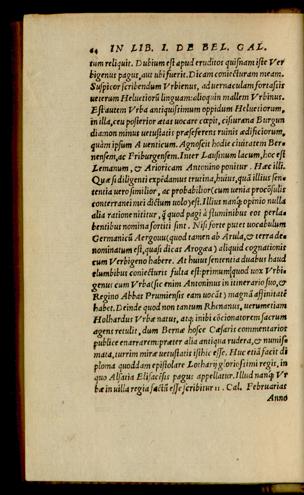 64 IN LIB. I. DE BEL. GAL.
tum reliquit. Dubium est apud eruditos quisnam iste Ver
bigenus pagus, aut ubi fuerit. Dicam coniecturam meam.
Suspicor scribendum Vrbienus, ad vernaculam fortassis
ueterum Heluetiorũ linguam: alioquin mallem Vrbinus.
Est autem Vrba antiquissimum oppidum Heluetiorum,
in illa, ceu posterior ætas uocare cœpit, cisiurana Burgun
dia: non minus uetustatis præseferens ruinis ædificiorum,
quàm ipsum Auenticum. Agnoscit hodie ciuitatem Ber-
nensem, ac Friburgensem. Inter Lausinum lacum, hoc est
Lemanum, & Arioricam Antonino ponitur. Hæc illi.
Quæ si diligenti expẽdamus trutina, huius, quã illius sen-
tentia uero similior, ac probabilior (cum uenia procõsulis
conterranei mei dictum uolo) est. Illius nanq; opinio nulla
alia ratione nititur, q̃ quod pagi à fluminibus eor perla-
bentibus nomina sortiti sint. Nisi forte putet uocabulum
Germanicũ Aergouu (quod tamen ab Arula, & terra de-
nominatum est, quasi dicat Arogæa) aliquid cognationis
cum Verbigeno habere. At huius sententia duabus haud
elumbibus coniecturis fulta est: primum quod uox Vrbi-
genus cum Vrba (sic enim Antoninus in itinerario suo, &
Regino Abbas Prumiensis eam uocãt) magnã affinitatẽ
habet. Deinde quod non tantum Rhenanus, uerumetiam
Holhardus Vrbæ natus, atq; inibi cõcionatorem sacrum
agens retulit, dum Bernæ hosce Cæsaris commentarios
publice enarrarem: præter alia antiqua rudera, & numis-
mata, turrim miræ uetustatis isthic esse. Huc etiã facit di
ploma quoddam epistolare Lotharij gloriosissimi regis, in
quo Alsatia Elisacẽsis pagus appellatur. Illud nanq; Vr
bæ in uilla regia factũ esse scribitur 11. Cal. Februarias
Anno